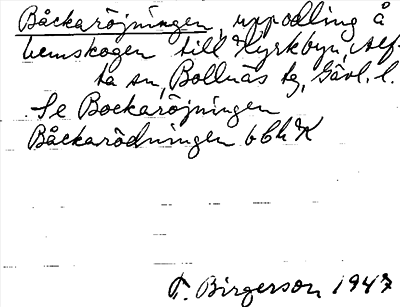 Båckaröjningen, uppodling å
hemskogen till Kyrkbyn, Alf-
ta sn, Bollnäs tg, Gävl. l.
Se Bockaröjningen
Båckarödningen bbhK
F. Birgerson 1947